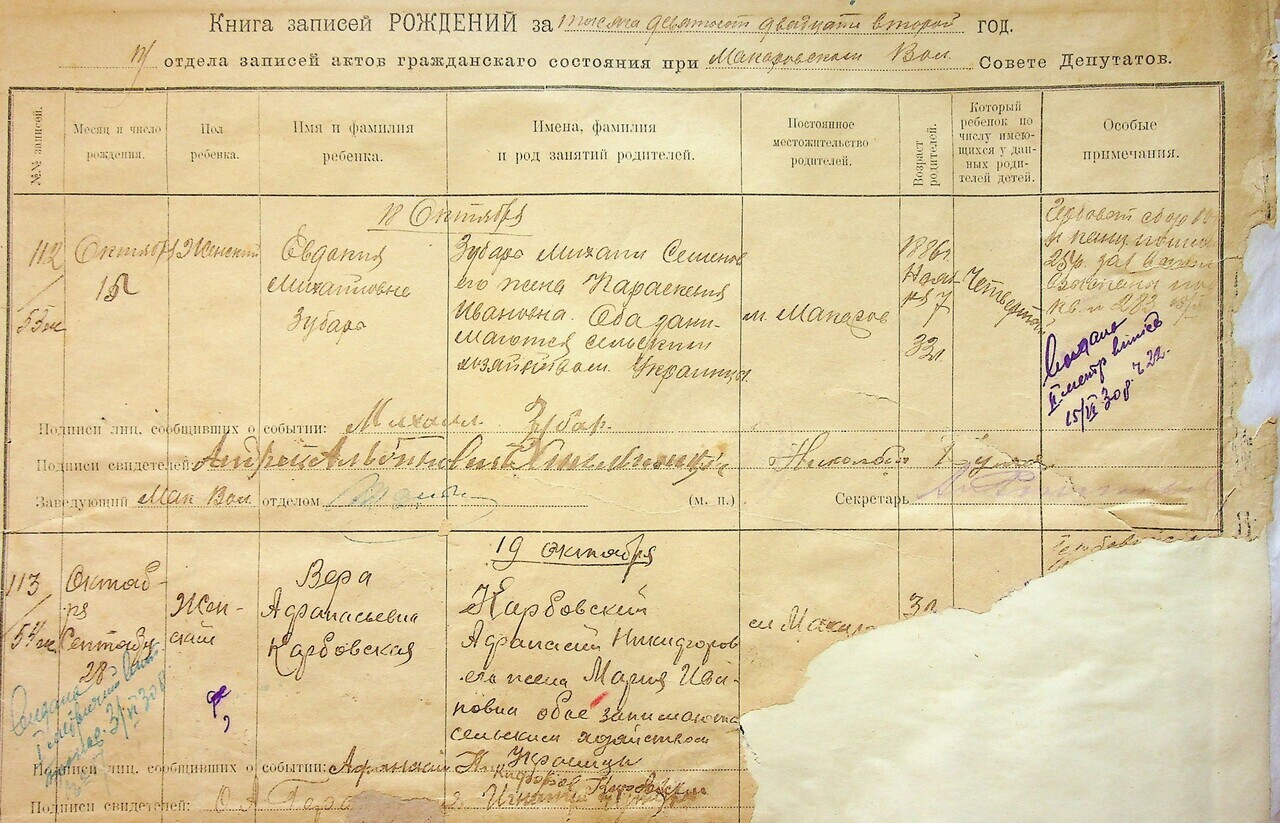 Книга записей РОЖДЕНИЙ за тысяча девятьсот двадцати второй год.
отдела записей актов гражданскаго состояния при Макаровском Вол. Совете Депутатов.
№№ записей.
Месяц и число
рождения.
Пол
ребенка.
Имя и фамилия
ребенка.
Имена, фамилия
и род занятий родителей.
Постоянное
местожительство
родителей.
Возраст
родителей.
Который
ребенок по
числу имею-
щихся у дан-
ных роди-
телей детей.
Особые
примечания.
18 Октября
112
53
Октября
Женский
Евдокия
Михайловна
Зубарь
Зубарь Михаил Семенов
его жена Параскевия
Ивановна. Оба зани-
маются сельским
хозяйством. Украинцы.
м. Макаров
1886г.
Нояб-
ря 7
33л.
Четвертый
Гербовый сбор
25р.
кв. № 282
Выдано
II метр.
15/VI 308. 22.
Подписи лиц, сообщивших о событии: Михаил Зубар.
Подписи свидетелей: Андрей Николай
Заведующий Мак Вол. отделом (м. п.) Секретарь
19 октября
113
54
Октяб-
ря
Сентября
28
Жен-
ский
Вера
Афанасьевна
Карбовская
Карбовский
Афанасий Никифоров
его жена Мария Ива-
новна обое занимаются
сельским хозяйством
Украинцы
Выдано
3/VI 308
Подписи лиц, сообщивших о событии: Афанасий
Никифоров
Подписи свидетелей: Игнатий